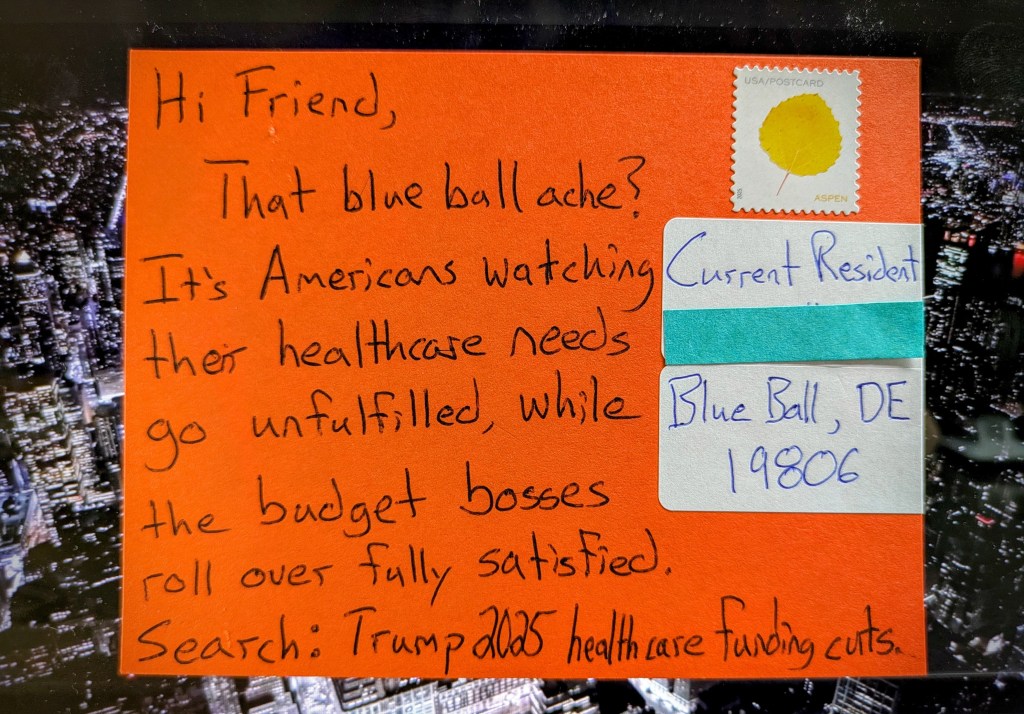 Hi Friend,
USA/POSTCARD
ASPEN
That blue ball ache?
It's Americans watching
their healthcare needs
go unfulfilled, while
the budget bosses
roll over fully satisfied.
Search: Trump 2025 healthcare funding cuts.
Current Resident
Blue Ball, DE
19806